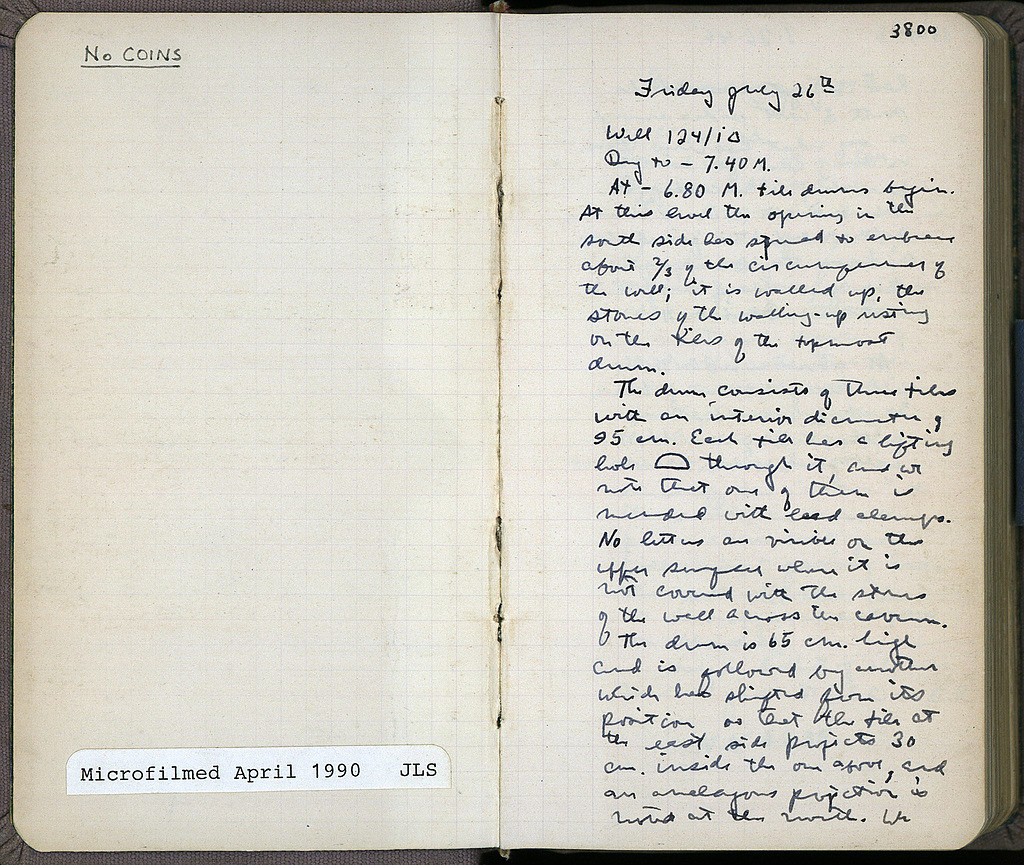 No COINS
Microfilmed April 1990 JLS
3800
Friday July 26th
Well 124/ΙΔ
Dug to – 7.40 M.
At – 6.80 M. tile drums begin.
At this level the opening in the
south side has spread to embrace
about 2/3 of the circumference of
the well; it is walled up, the
stones of the walling-up resting
on the tiles of the topmost
drum.
The drum consists of three tiles
with an interior diameter of
95 cm. Each tile has a lifting
hole through it, and we
note that one of them is
mended with lead clamps.
No letters are visible on the
upper surface where it is
not covered with the stones
of the wall across the cavern.
The drum is 65 cm. high
and is followed by another
which has shifted from its
position so that the tile at
the east side projects 30
cm. inside the one above, and
an analagous projection is
noted at the north. We